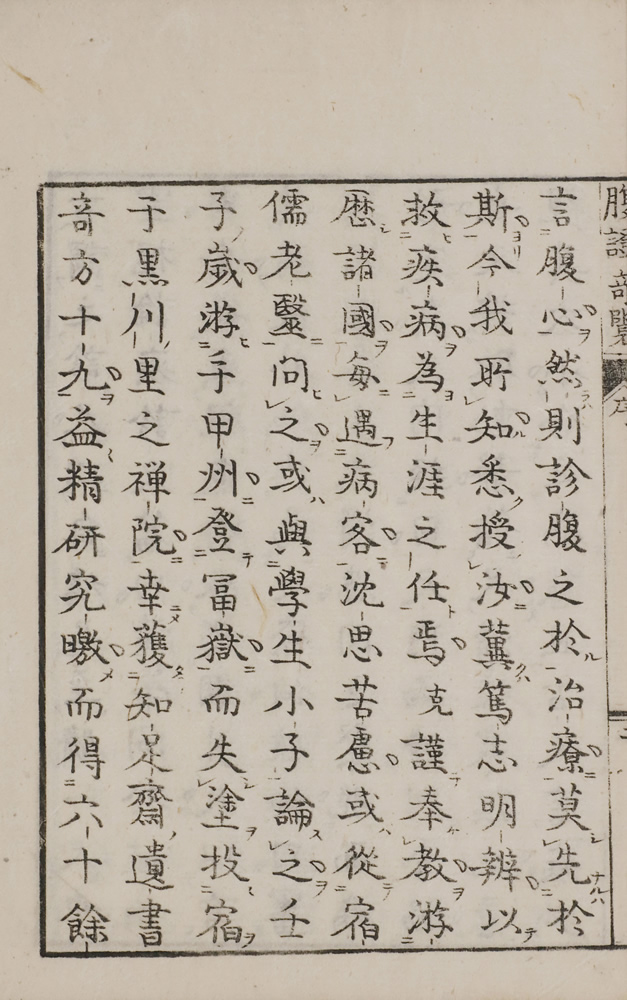 腹證奇覽
序
言腹心然則診腹之於治療莫先於
斯今我所知悉授汝冀篤志明辨以
救疾病為生涯之任焉克謹奉教游
歷諸國每遇病客沈思苦慮或從宿
儒老醫問之或與學生小子論之壬
子歲游于甲州登冨嶽而失塗投宿
于黒川里之禅院幸獲知足齋遺書
竒方十九益精研究曒而得六十餘